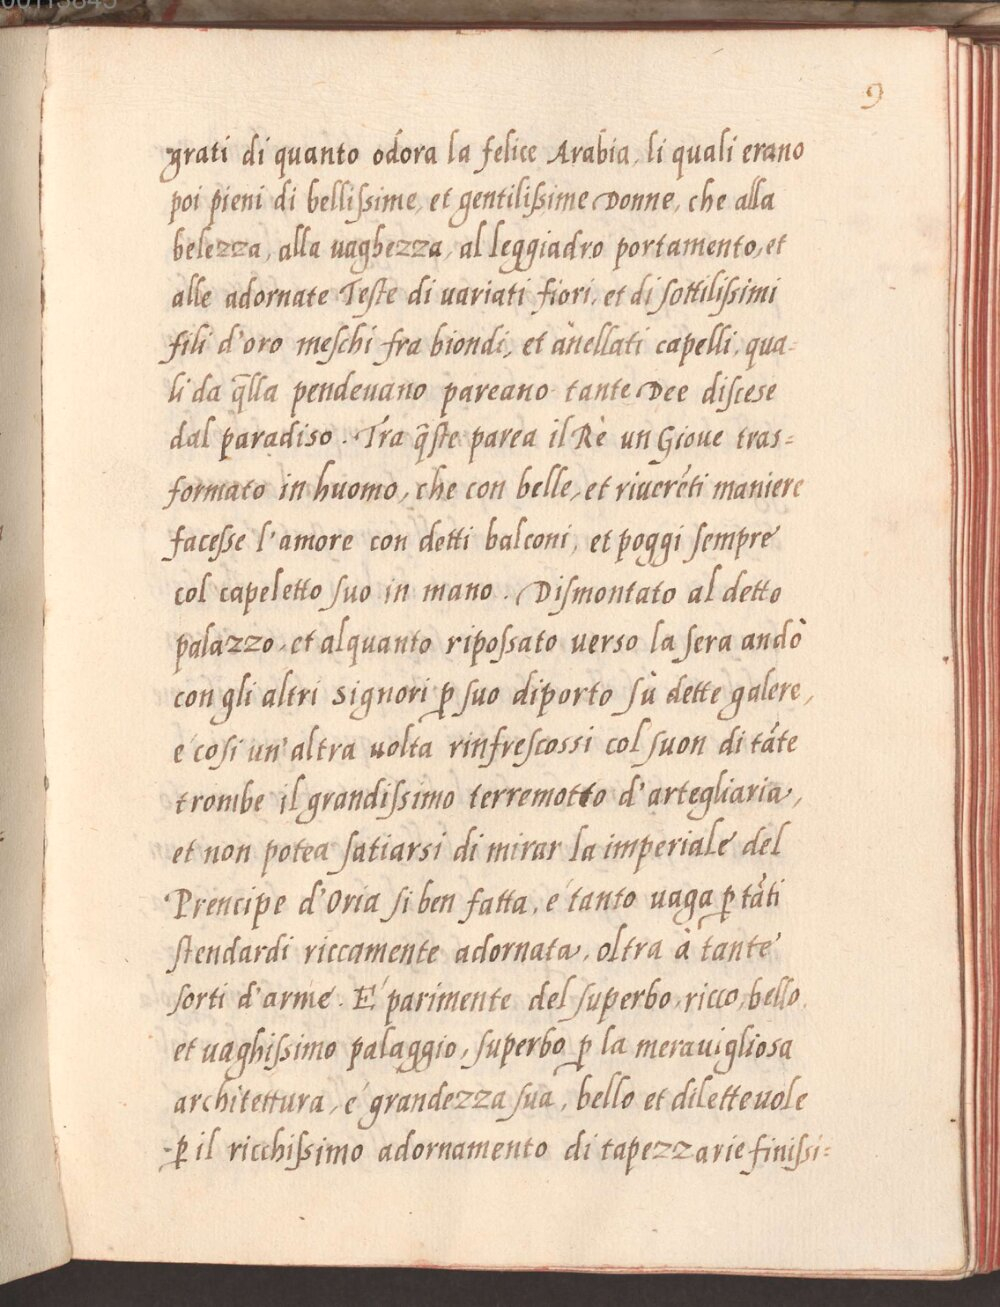 9
grati di quanto odora la felice Arabia, li quali erano
poi pieni di bellißime, et gentilißime Donne, che alla
belezza, alla uaghezza, al leggiadro portamento, et
alle adornate Teste di uariati fiori, et di sottilißimi
fili d'oro meschi fra biondi, et anellati capelli, qua-
li da q̃lla pendeuano pareano tante Dee discese
dal paradiso. Tra q̃ste parea il Rè un Gioue tras=
formato in huomo, che con belle, et riuerẽti maniere
faceße l'amore con detti balconi, et poggi sempre
col capeletto suo in mano. Dismontato al detto
palazzo, et alquanto ripoßato uerso la sera andò
con gli altri signori ꝑ suo diporto sù dette galere,
e così un'altra uolta rinfrescossi col suon di tãte
trombe il grandißimo terremotto d'artegliaria,
et non potea satiarsi di mirar la imperiale del
Prencipe d'Oria si ben fatta, e tanto uaga ꝑ tãti
stendardi riccamente adornata, oltra à tante
sorti d'arme. E parimente del superbo, ricco, bello,
et uaghißimo palaggio, superbo ꝑ la merauigliosa
architettura, e grandezza sua, bello et diletteuole
ꝑ il ricchißimo adornamento di tapezzarie finißi=